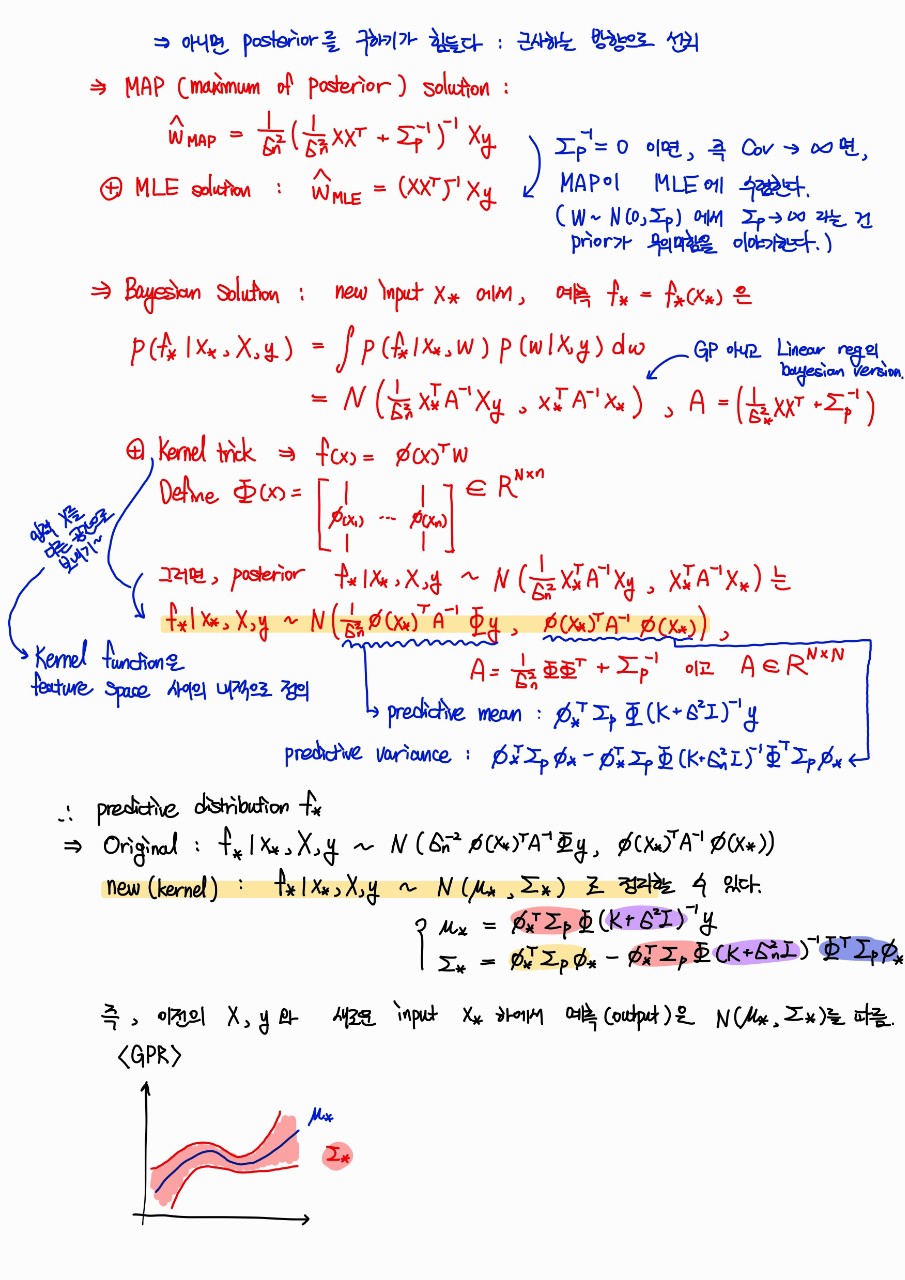 ⇒ 아니면 posterior를 구하기가 힘들다 : 근사하는 방향으로 선회
⇒ MAP (maximum of posterior) solution :
ŵ_MAP = 1/σn² (1/σn² XXᵀ + Σp⁻¹)⁻¹ Xy
⊕ MLE solution : ŵ_MLE = (XXᵀ)⁻¹ Xy
Σp⁻¹ = 0 이면, 즉 Cov → ∞ 면,
MAP이 MLE에 수렴한다.
(W ~ N(0, Σp) 에서 Σp → ∞ 라는 건
prior가 무의미함을 이야기한다.)
⇒ Bayesian solution : new input X* 에서, 예측 f* = f*(X*) 은
p(f* | X*, X, y) = ∫ p(f* | X*, W) p(W | X, y) dw
GP 아니고 Linear reg의
bayesian version.
= N(1/σn² X*ᵀ A⁻¹ Xy, X*ᵀ A⁻¹ X*), A = (1/σ*² XXᵀ + Σp⁻¹)
⊕ Kernel trick ⇒ f(x) = φ(x)ᵀ W
Define Φ(x) = [φ(x₁) ⋯ φ(xₙ)] ∈ R^(N×n)
입력 X를
다른 공간으로
보내기~
그러면, posterior f* | X*, X, y ~ N(1/σn² X*ᵀ A⁻¹ Xy, X*ᵀ A⁻¹ X*) 는
f* | X*, X, y ~ N(1/σn² φ(X*)ᵀ A⁻¹ Φy, φ(X*)ᵀ A⁻¹ φ(X*)),
A = 1/σn² ΦΦᵀ + Σp⁻¹ 이고 A ∈ R^(N×N)
Kernel function은
feature space 사이의 내적으로 정의
→ predictive mean : φ*ᵀ Σp Φ (K+σ²I)⁻¹ y
predictive variance : φ*ᵀ Σp φ* − φ*ᵀ Σp Φ (K+σn²I)⁻¹ Φᵀ Σp φ*
∴ predictive distribution f*
⇒ Original : f* | X*, X, y ~ N(σn⁻² φ(X*)ᵀ A⁻¹ Φy, φ(X*)ᵀ A⁻¹ φ(X*))
new (kernel) : f* | X*, X, y ~ N(μ*, Σ*) 로 정리할 수 있다.
μ* = φ*ᵀ Σp Φ (K+σ²I)⁻¹ y
Σ* = φ*ᵀ Σp φ* − φ*ᵀ Σp Φ (K+σn²I)⁻¹ Φᵀ Σp φ*
즉, 이전의 X, y 와 새로운 input X* 하에서 예측(output)은 N(μ*, Σ*)를 따름.
<GPR>
μ*
Σ*